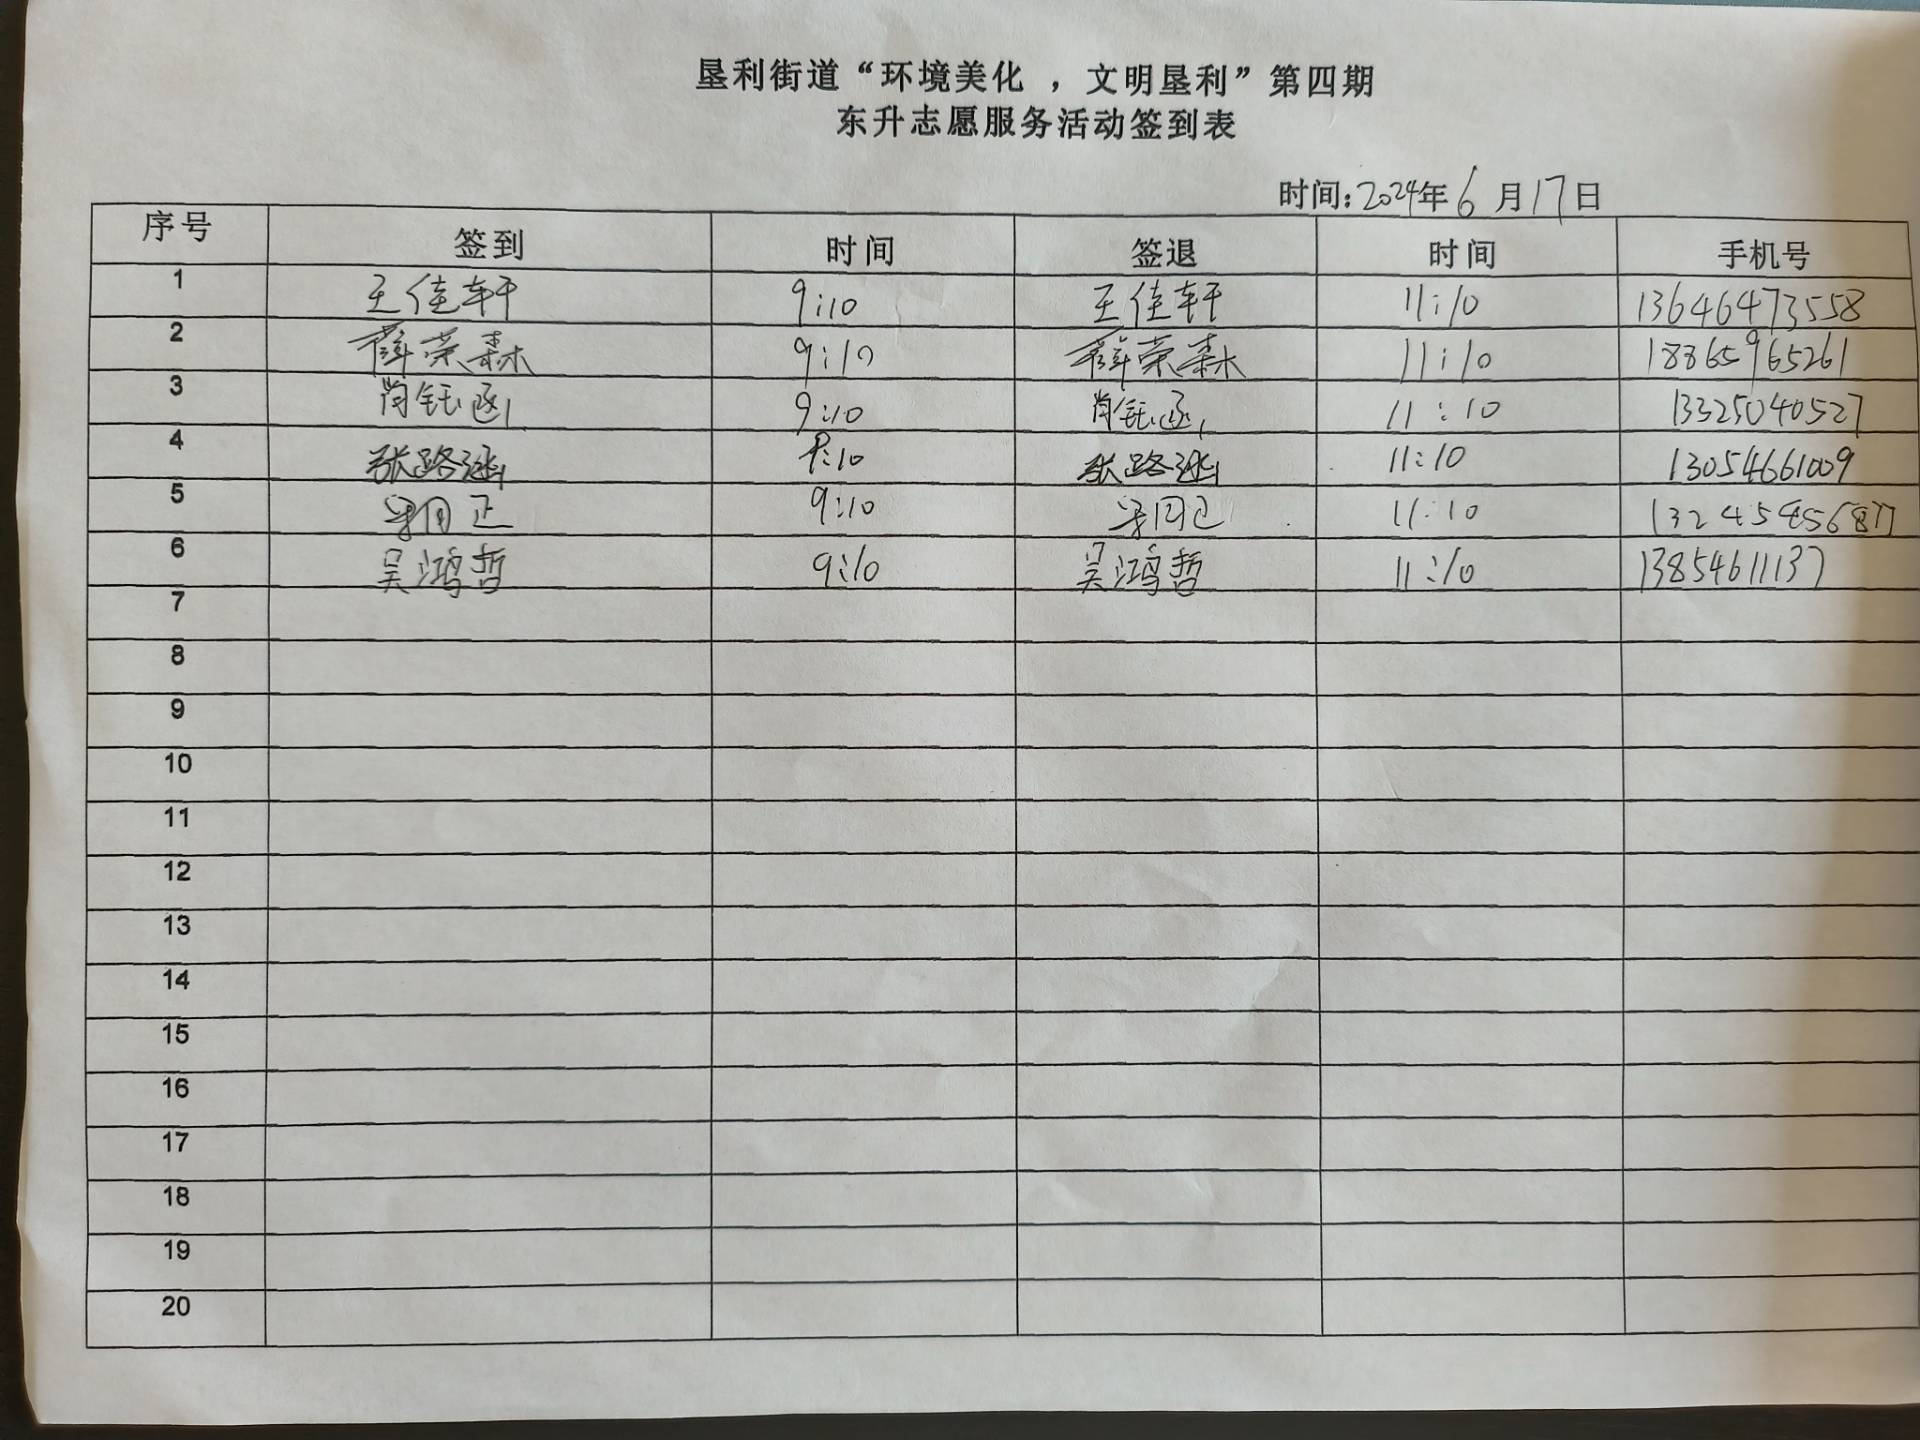 垦利街道“环境美化 ，文明垦利”第四期
东升志愿服务活动签到表
时间:2024年6月17日
序号 签到 时间 签退 时间 手机号
1 王佳轩 9:10 王佳轩 11:10 13646473558
2 薛荣森 9:10 薛荣森 11:10 18865965261
3 肖钰函 9:10 肖钰函 11:10 13325040527
4 张路涵 9:10 张路涵 11:10 13054661009
5 9:10 11:10
6 吴鸿哲 9:10 吴鸿哲 11:10 13854611137
7
8
9
10
11
12
13
14
15
16
17
18
19
20